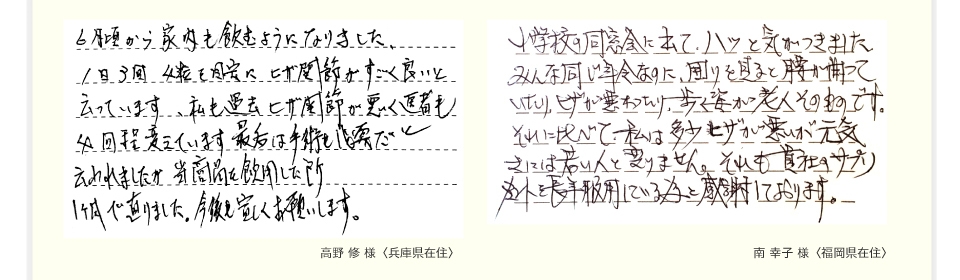 6月頃から家内も飲むようになりました、
1日3回 4粒を目安に ヒザ関節がすごく良いと
云っています、私も過去ヒザ関節が悪く医者も
4回程変えています最后は手術も必要だと
云われましたが 当商品を飲用した所
1ヶ月で直りました。今後も宜しくお願いします。
高野 修 様〈兵庫県在住〉
小学校の同窓会に出て、ハッと気がつきました
みんな同じ年令なのに、周りを見ると腰が曲って
いたり、ヒザが悪わったり、歩く姿が老人そのものです。
それに比べて、私は多少ヒザが悪いが元気
さには若い人と変りません。それも貴社のサプリ
メントを長年服用している為と感謝しております。
南 幸子 様〈福岡県在住〉